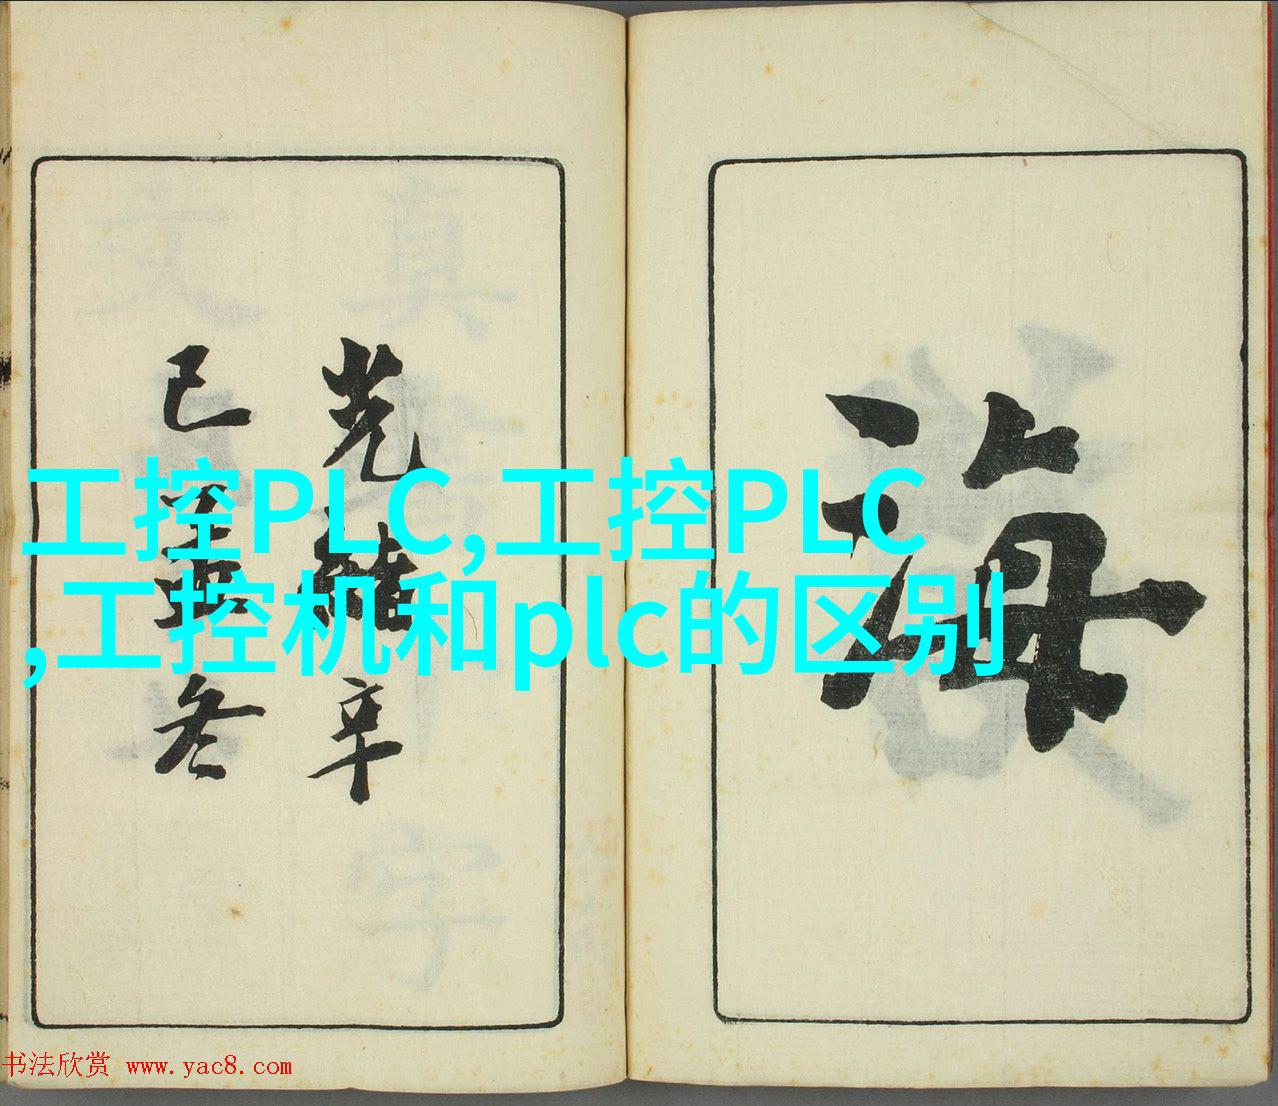 海
光緒辛
巳孟冬
工控PLC,工控PLC
,工控机和plc的区别
书法欣赏 www.yac8.com